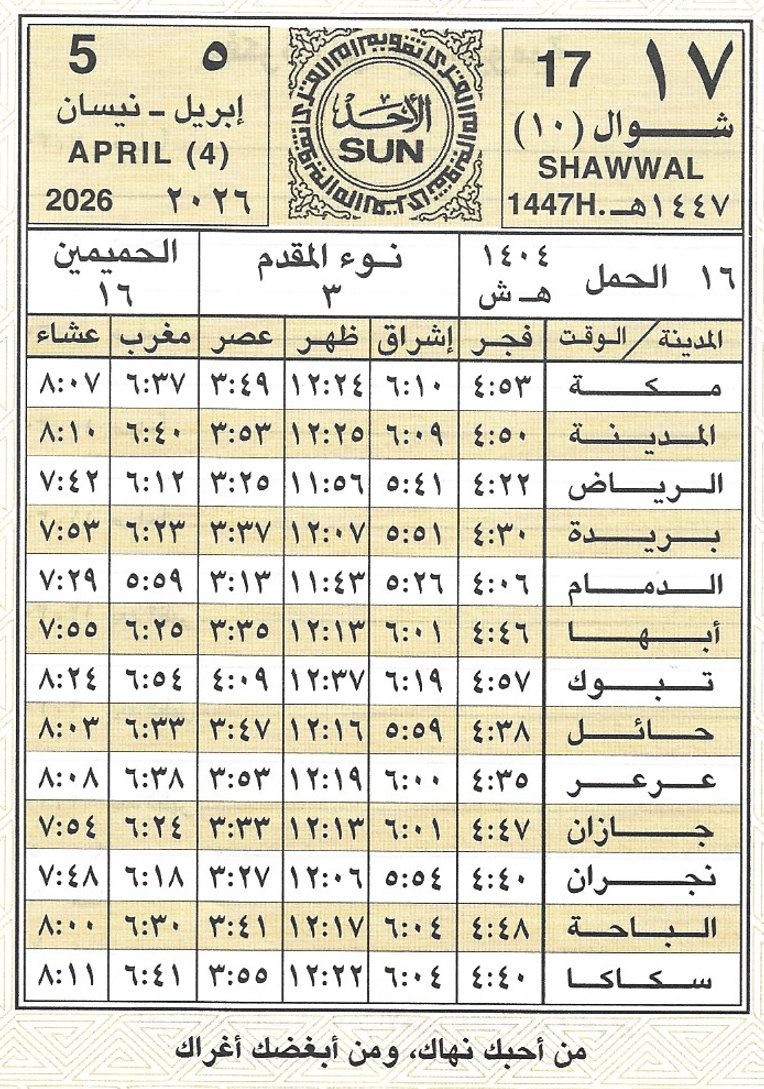 ١٧ 17
شوال (١٠)
SHAWWAL
1447H. ١٤٤٧هـ
تقويم أم القرى تقويم أم القرى
الأحد
SUN
5 ٥
إبريل - نيسان
APRIL (4)
2026 ٢٠٢٦
١٦ الحمل ١٤٠٤ هـ ش
نوء المقدم ٣
الحميمين ١٦
المدينة / الوقت فجر إشراق ظهر عصر مغرب عشاء
مكة ٤:٥٣ ٦:١٠ ١٢:٢٤ ٣:٤٩ ٦:٣٧ ٨:٠٧
المدينة ٤:٥٠ ٦:٠٩ ١٢:٢٥ ٣:٥٣ ٦:٤٠ ٨:١٠
الرياض ٤:٢٢ ٥:٤١ ١١:٥٦ ٣:٢٥ ٦:١٢ ٧:٤٢
بريدة ٤:٣٠ ٥:٥١ ١٢:٠٧ ٣:٣٧ ٦:٢٣ ٧:٥٣
الدمام ٤:٠٦ ٥:٢٦ ١١:٤٣ ٣:١٣ ٥:٥٩ ٧:٢٩
أبها ٤:٤٦ ٦:٠١ ١٢:١٣ ٣:٣٥ ٦:٢٥ ٧:٥٥
تبوك ٤:٥٧ ٦:١٩ ١٢:٣٧ ٤:٠٩ ٦:٥٤ ٨:٢٤
حائل ٤:٣٨ ٥:٥٩ ١٢:١٦ ٣:٤٧ ٦:٣٣ ٨:٠٣
عرعر ٤:٣٥ ٦:٠٠ ١٢:١٩ ٣:٥٣ ٦:٣٨ ٨:٠٨
جازان ٤:٤٧ ٦:٠١ ١٢:١٣ ٣:٣٣ ٦:٢٤ ٧:٥٤
نجران ٤:٤٠ ٥:٥٤ ١٢:٠٦ ٣:٢٧ ٦:١٨ ٧:٤٨
الباحة ٤:٤٨ ٦:٠٤ ١٢:١٧ ٣:٤١ ٦:٣٠ ٨:٠٠
سكاكا ٤:٤٠ ٦:٠٤ ١٢:٢٢ ٣:٥٥ ٦:٤١ ٨:١١
من أحبك نهاك، ومن أبغضك أغراك